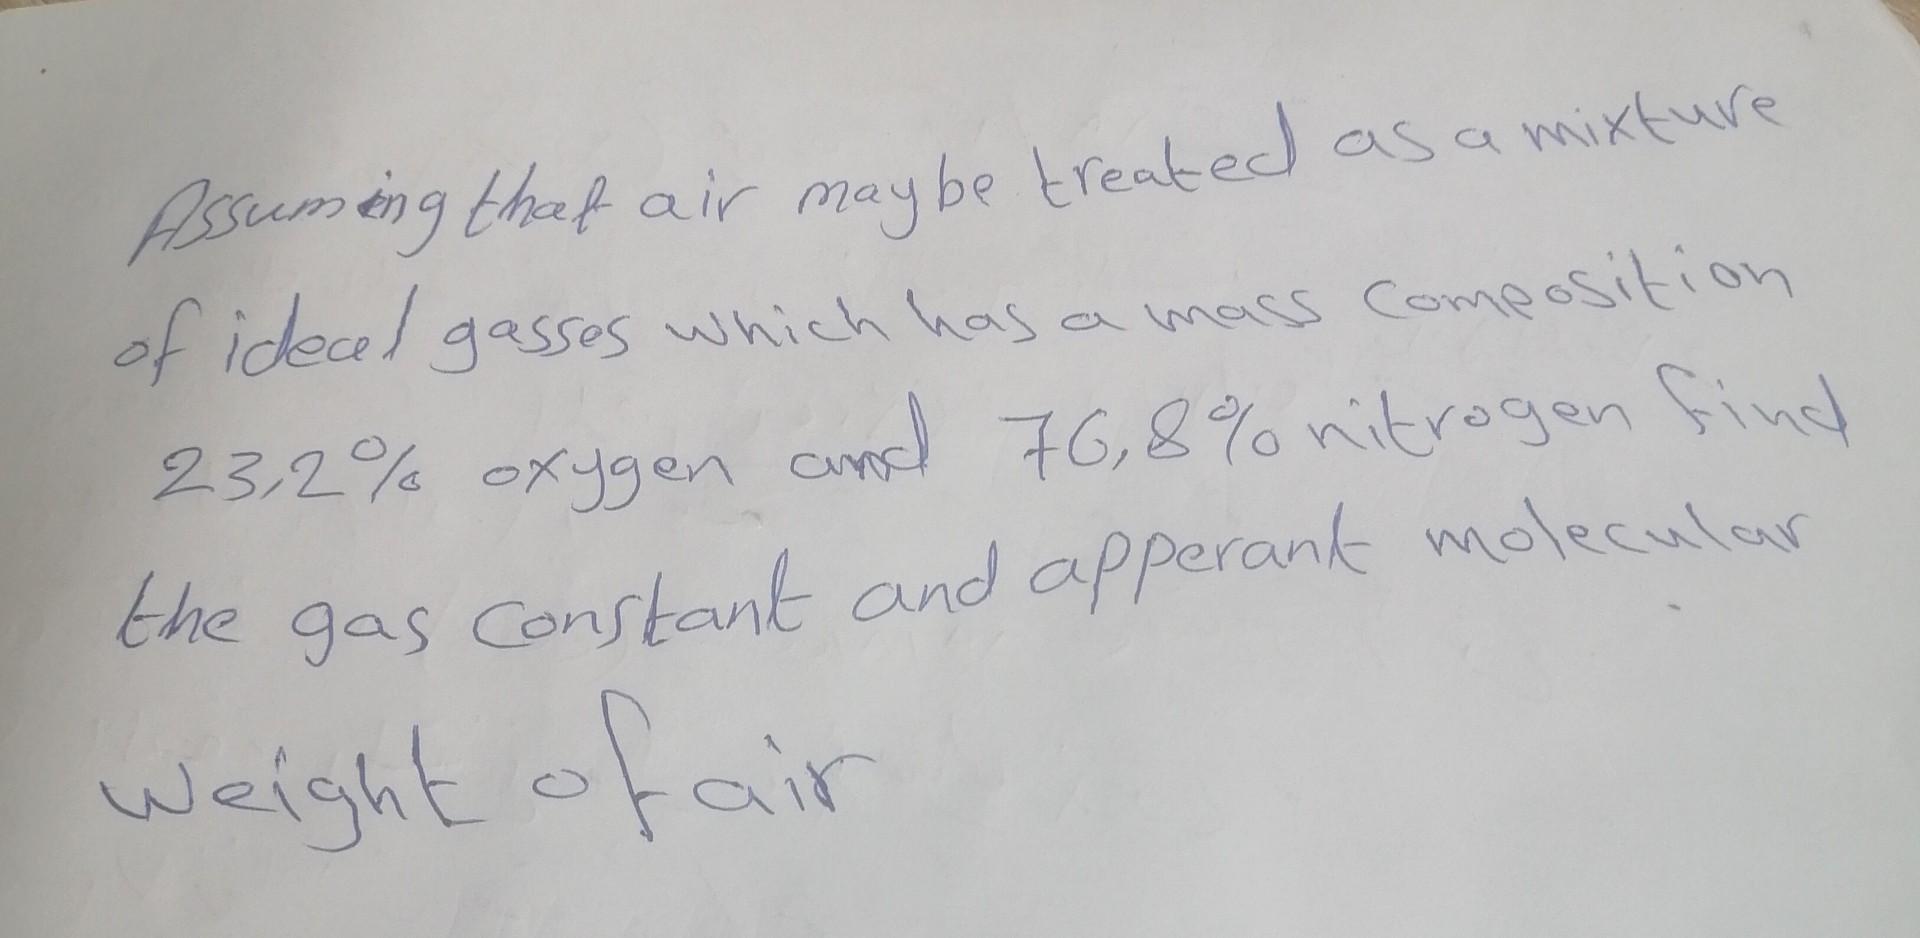 Assuming that air may be treated as a mixture
of ideal gasses which has a mass composition
23,2% oxygen and 76,8% nitrogen find
the gas constant and apperant molecular
weight of air